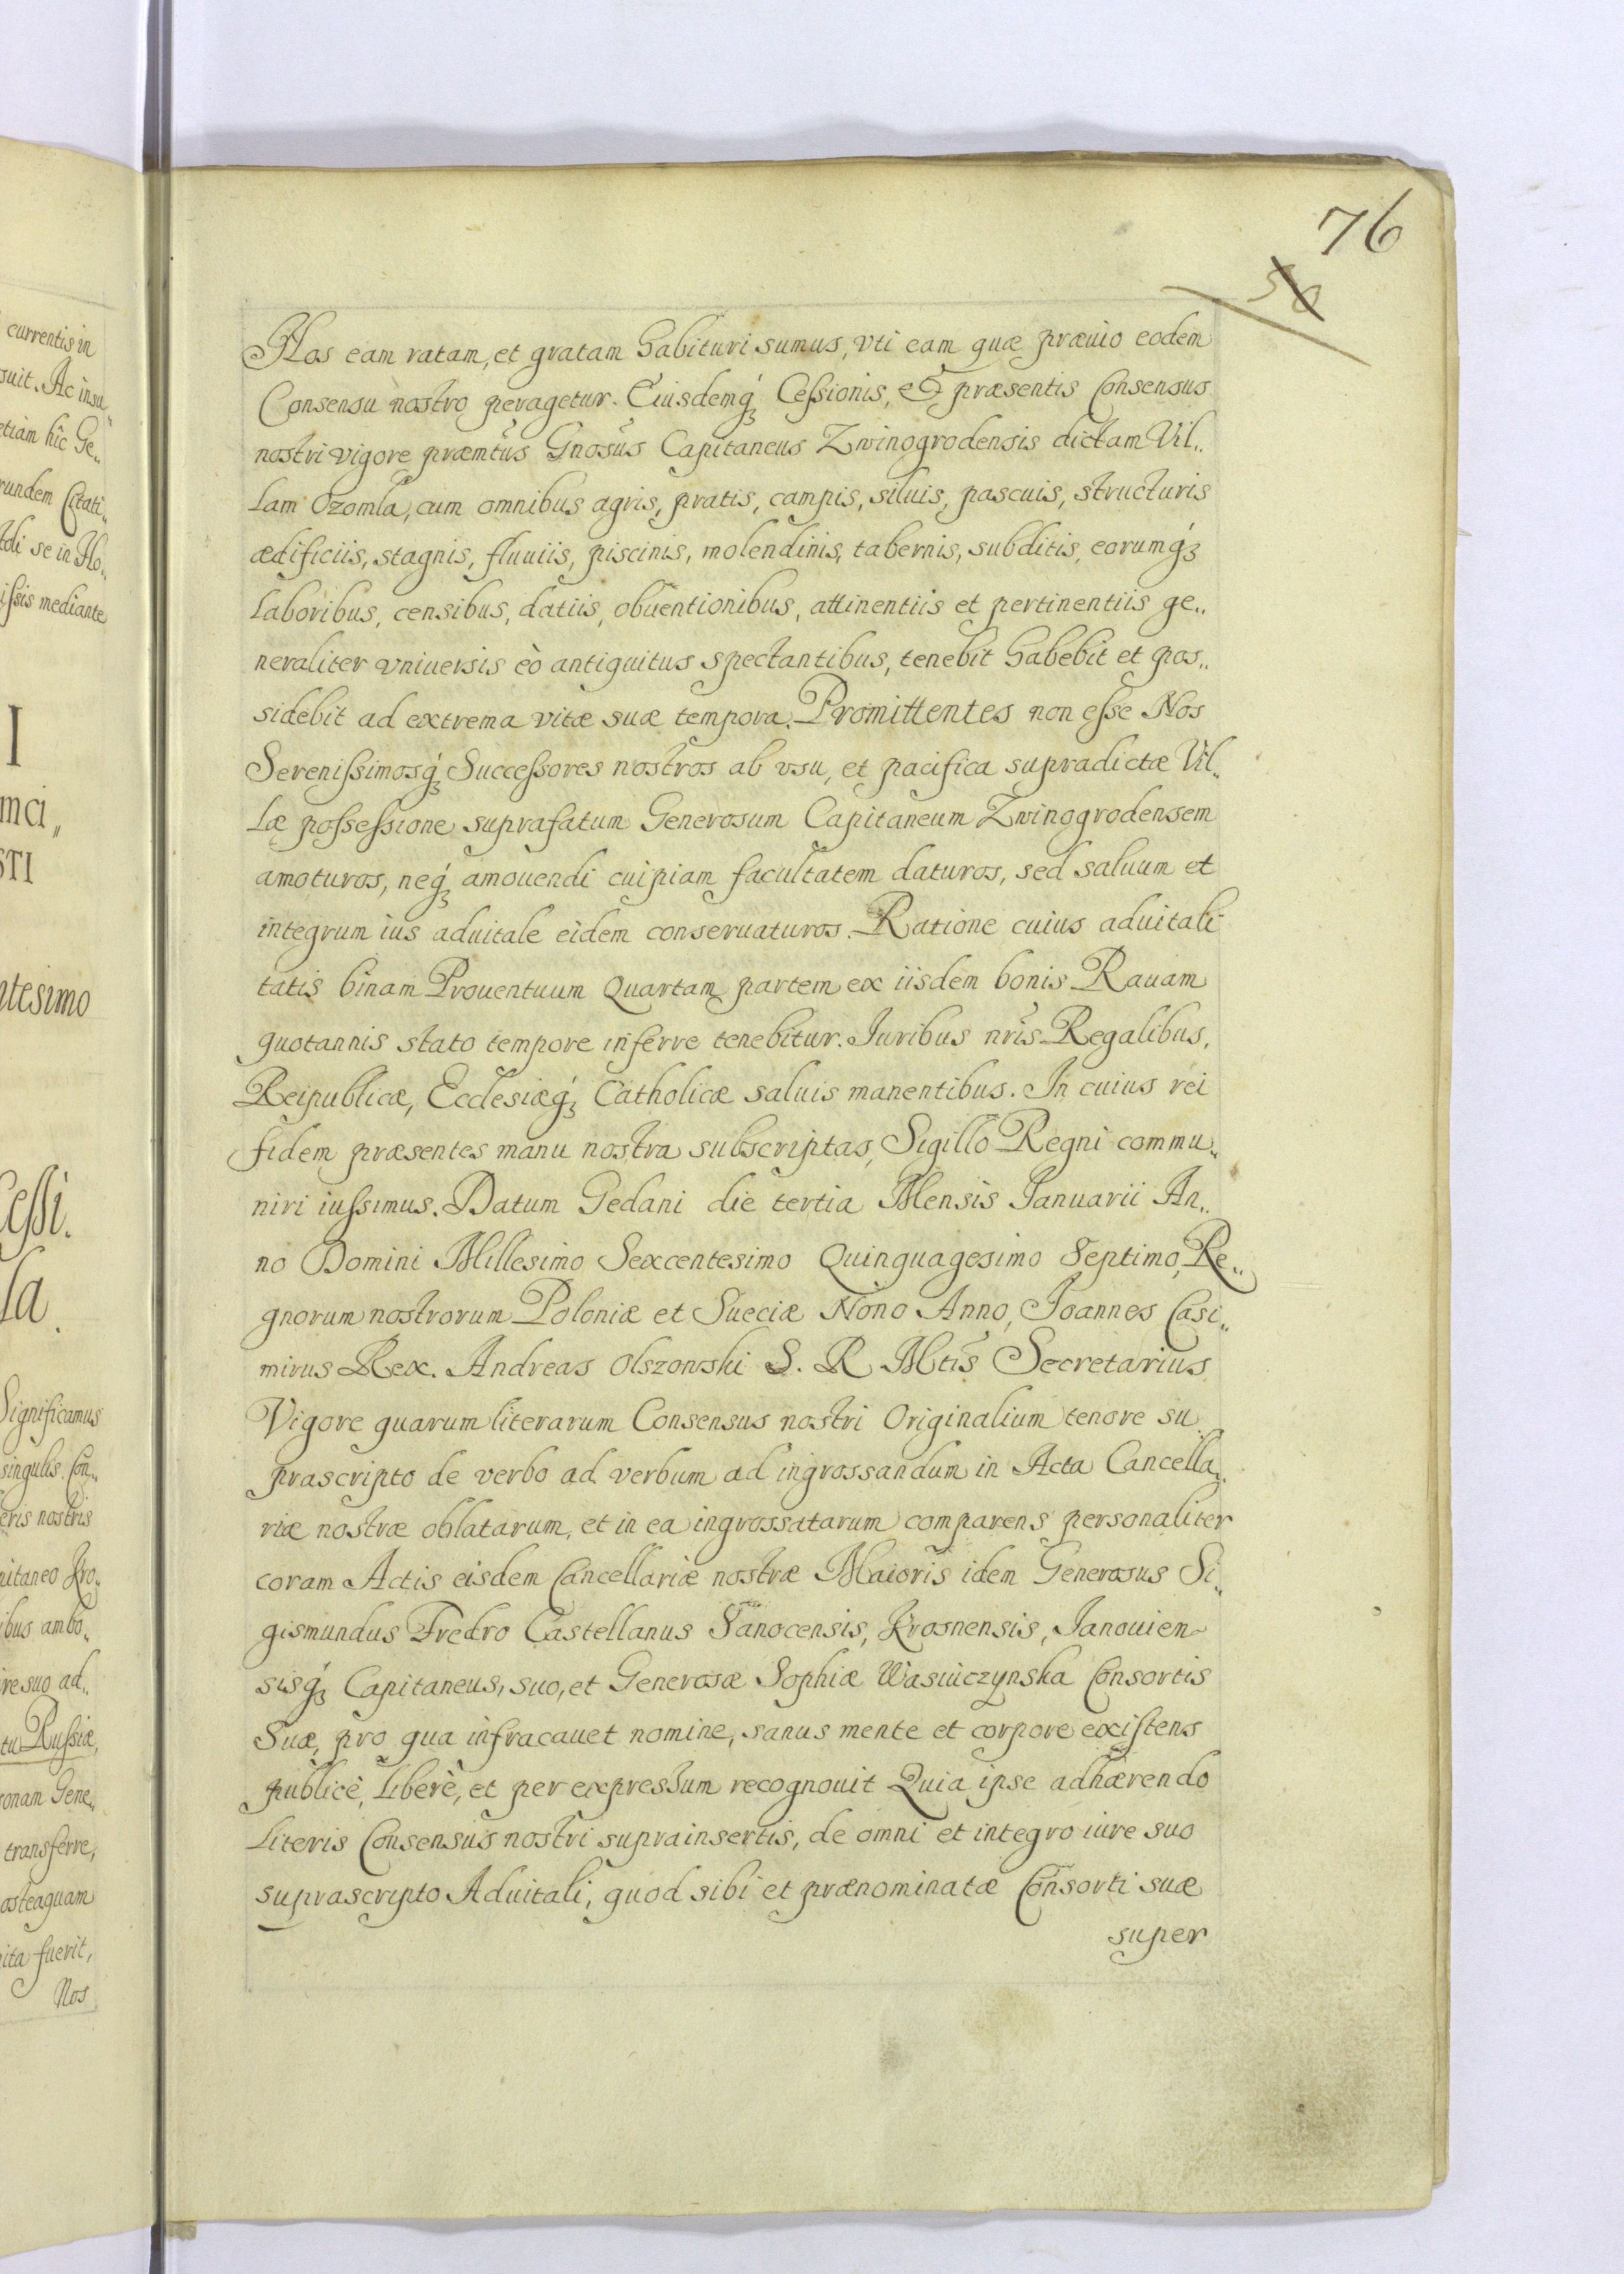 76
Nos eam ratam, et gratam habituri sumus, vti eam quæ præuio eodem
Consensu nostro peragetur. Eiusdemq́ꝫ Cessionis, et præsentis Consensus
nostri vigore præmtūs Gnosūs Capitaneus Zwinogrodensis dictam Vil„
lam Ozomla, cum omnibus agris, pratis, campis, siluis, pascuis, structuris
ædificiis, stagnis, fluuiis, piscinis, molendinis, tabernis, subditis, eorumq́ꝫ
laboribus, censibus, datiis, obuentionibus, attinentiis et pertinentiis ge„
neraliter vniuersis eò antiquitus spectantibus, tenebit habebit et pos„
sidebit ad extrema vitæ suæ tempora. Promittentes non esse Nos
Serenissimosq́ꝫ Successores nostros ab vsu, et pacifica supradictæ Vil„
læ possessione suprafatum Generosum Capitaneum Zwinogrodensem
amoturos, neq́ꝫ amouendi cuipiam facultatem daturos, sed saluum et
integrum ius aduitale eidem conseruaturos. Ratione cuius aduitali
tatis binam Prouentuum Quartam partem ex iisdem bonis Rauam
quotannis stato tempore inferre tenebitur. Iuribus nr̄is Regalibus,
Reipublicæ, Ecclesiæq́ꝫ Catholicæ saluis manentibus. In cuius rei
fidem præsentes manu nostra subscriptas, Sigillo Regni commu„
niri iussimus. Datum Gedani die tertia Mensis Ianuarii An„
no Domini Millesimo Sexcentesimo Quinquagesimo Septimo, Re„
gnorum nostrorum Poloniæ et Sueciæ Nono Anno, Ioannes Casi„
mirus Rex. Andreas Olszowski S. R. Mtīs Secretarius
Vigore quarum literarum Consensus nostri Originalium tenore su„
prascripto de verbo ad verbum ad ingrossandum in Acta Cancella„
riæ nostræ oblatarum, et in ea ingrossatarum comparens personaliter
coram Actis eisdem Cancellariæ nostræ Maioris idem Generosus Si„
gismundus Fredro Castellanus Sanocensis, Krosnensis, Ianouien„
sisq́ꝫ Capitaneus, suo, et Generosæ Sophiæ Wasiuczynska Consortis
Suæ, pro qua infracauet nomine, sanus mente et corpore existens
publicè, liberè, et per expressum recognouit Quia ipse adhærendo
literis Consensus nostri suprainsertis, de omni et integro iure suo
suprascripto Aduitali, quod sibi et prænominatæ Consorti suæ
super
currentis in
suit. Ac insu„
etiam hîc Ge„
rundem Citati„
se in No„
issis mediante
I
mci„
STI
ntesimo
Cessi.
la.
Significamus
singulis. Con„
eris nostris
pitaneo Kro„
ibus ambo„
re suo ad„
tu Russiæ,
sonam Gene„
transferre,
osteaquam
ita fuerit,
Nos